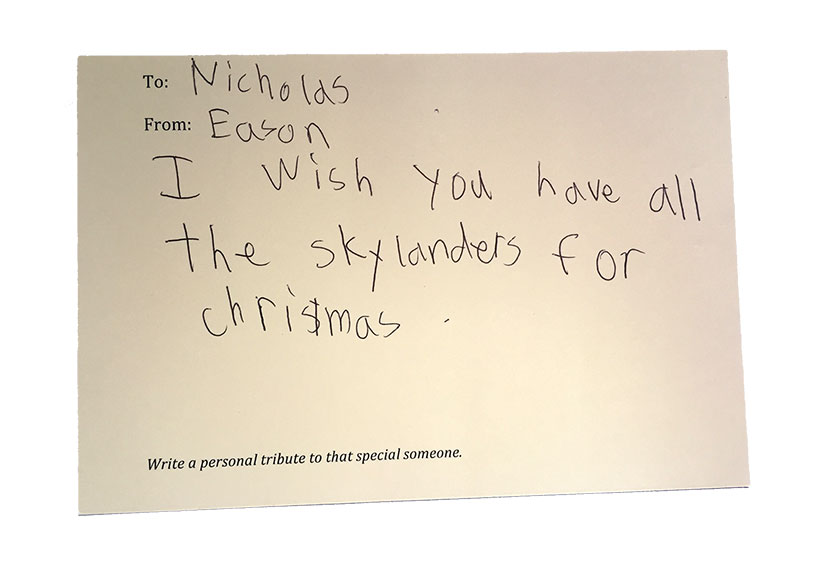 To: Nicholas
From: Eason
I wish you have all
the skylanders for
christmas .
Write a personal tribute to that special someone.